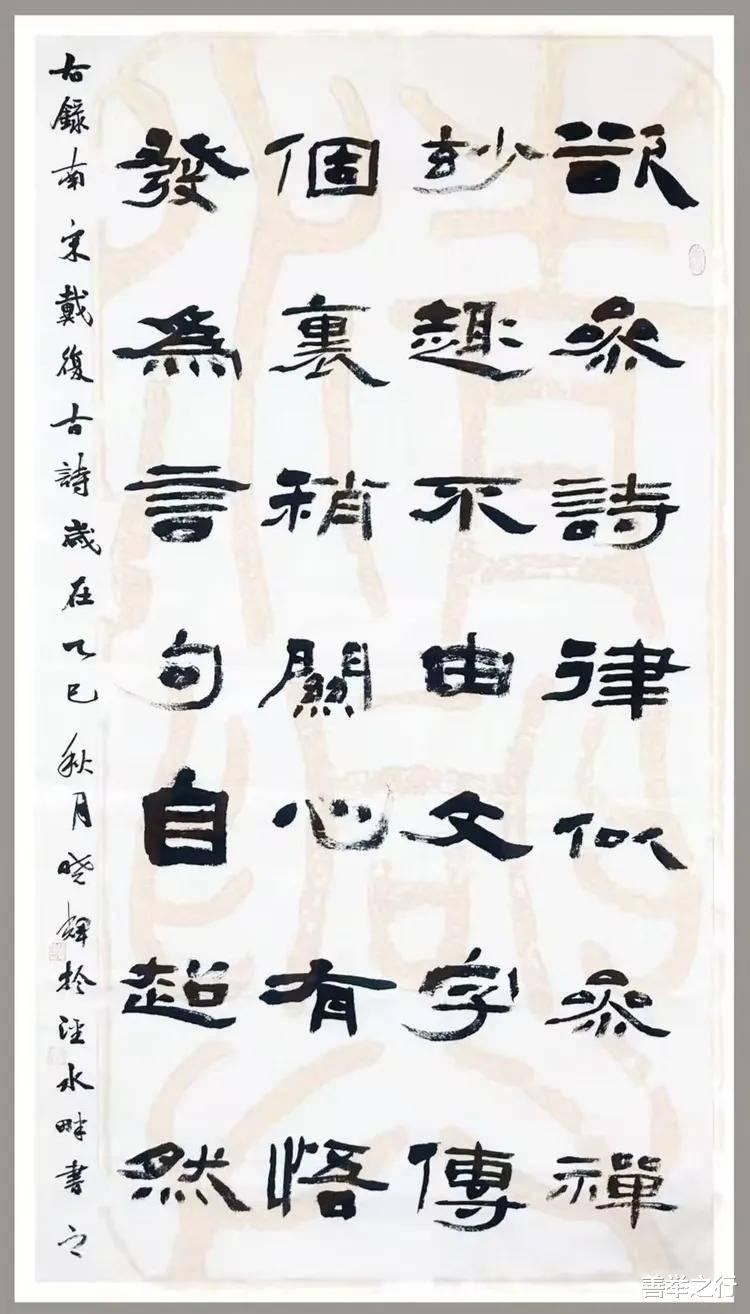 欲参詩律似参禪
玅趣不由文字傳
個裏稍關心有悟
發為言句自超然
右錄南宋戴復古詩歲在乙巳秋月晓輝於涇水畔書之
善举之行